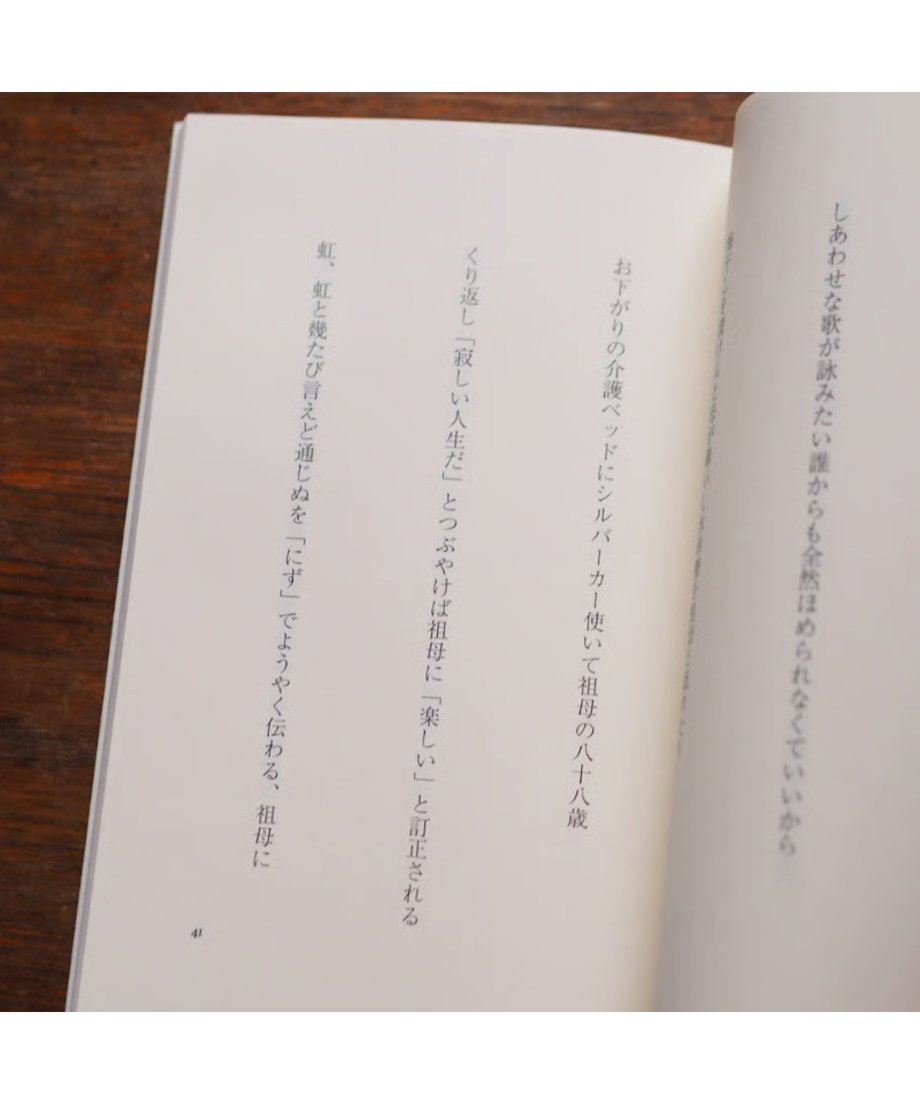 しあわせな歌が詠みたい誰からも全然ほめられなくていいから
お下がりの介護ベッドにシルバーカー使いて祖母の八十八歳
くり返し「寂しい人生だ」とつぶやけば祖母に「楽しい」と訂正される
虹、虹と幾たび言えど通じぬを「にず」でようやく伝わる、祖母に
41